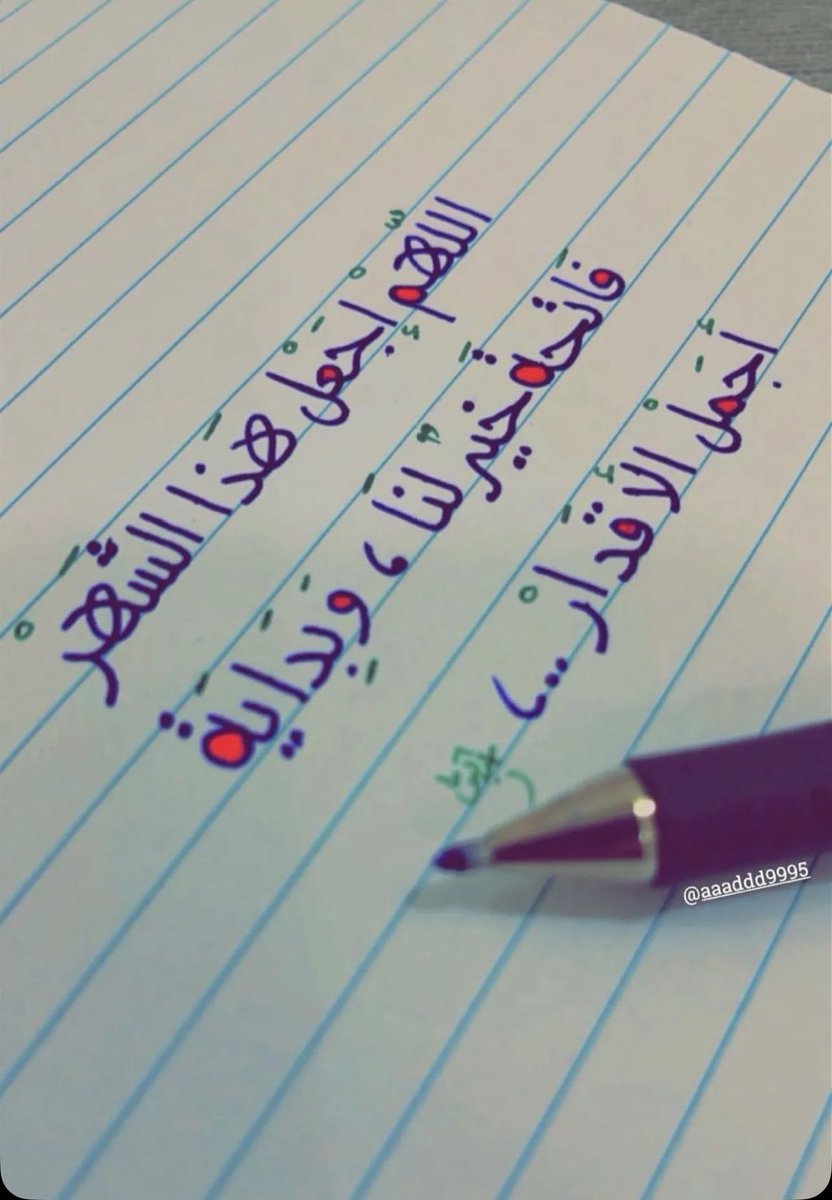 اللّهم اجعل هذا الشهر
فاتحة خير لنا ، وبداية
أجمل الاقدار ..،
@aaaddd9995